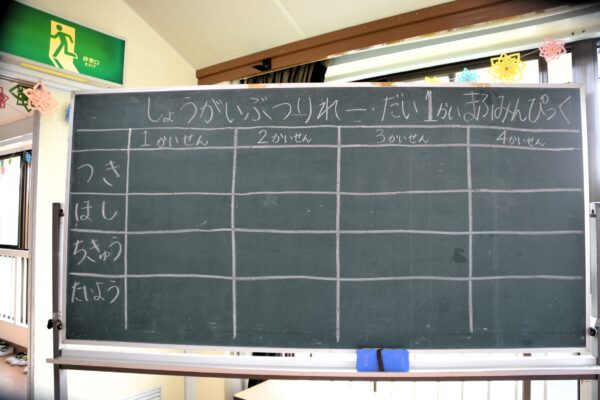 非常口
EXIT
しょうがいぶつりれー・だい1かいまろにみんぴっく
1かいせん 2かいせん 3かいせん 4かいせん
つき
ほし
ちきゅう
たいよう